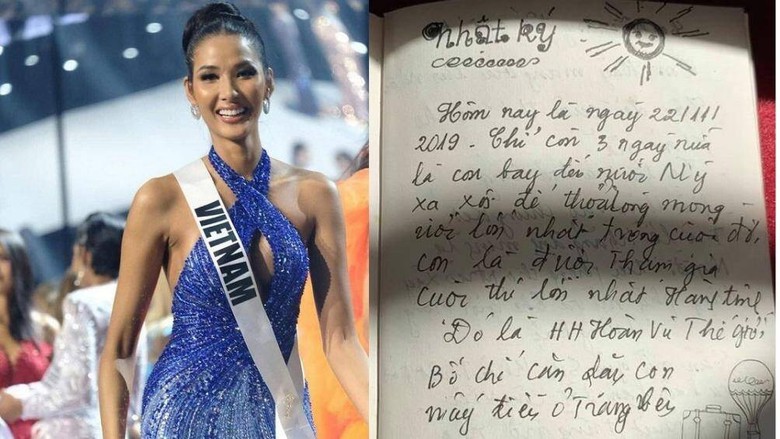 VIETNAM
nhật ký
Hôm nay là ngày 22/11/
2019 - Chỉ còn 3 ngày nữa
là con bay đến nước Mỹ
xa xôi để thỏa lòng mong
ước lớn nhất trong cuộc đời,
con là được Tham gia
cuộc thi lớn nhất Hành tinh
Đó là HH Hoàn Vũ Thế giới,
Bố chỉ cần dặn con
mấy điều ở Trang bên